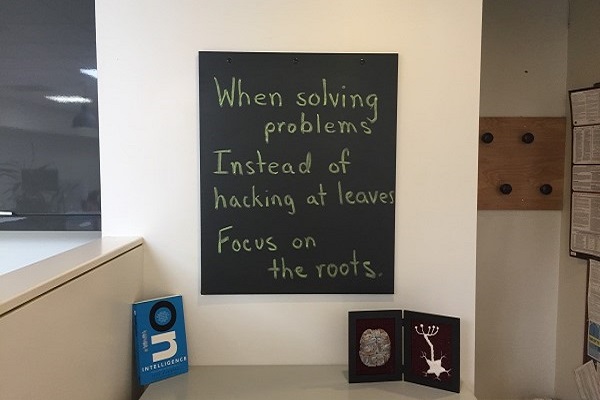 When solving
problems
Instead of
hacking at leaves
Focus on
the roots.
on
INTELLIGENCE